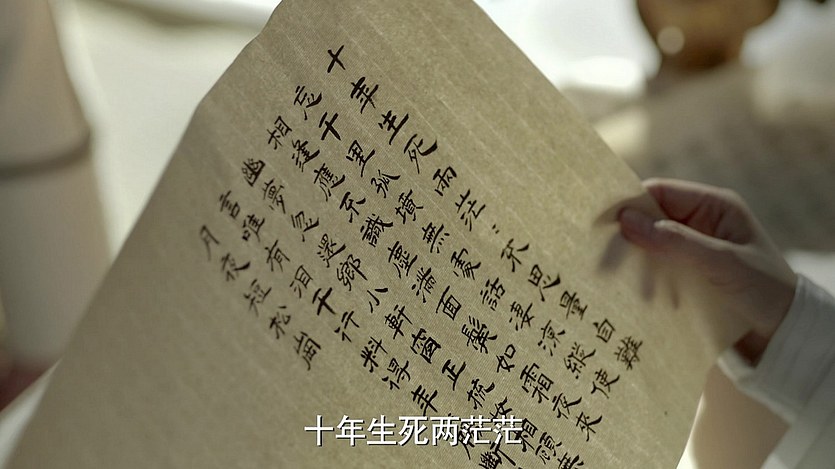 十年生死兩茫:不思量自難
忘千里孤墳無處話凄涼縱使
相逢應不識塵滿面鬢如霜夜來
幽夢忽還鄉小軒窗正梳妝相顧無
言唯有泪千行料得年斷
月夜短松崗
十年生死两茫茫